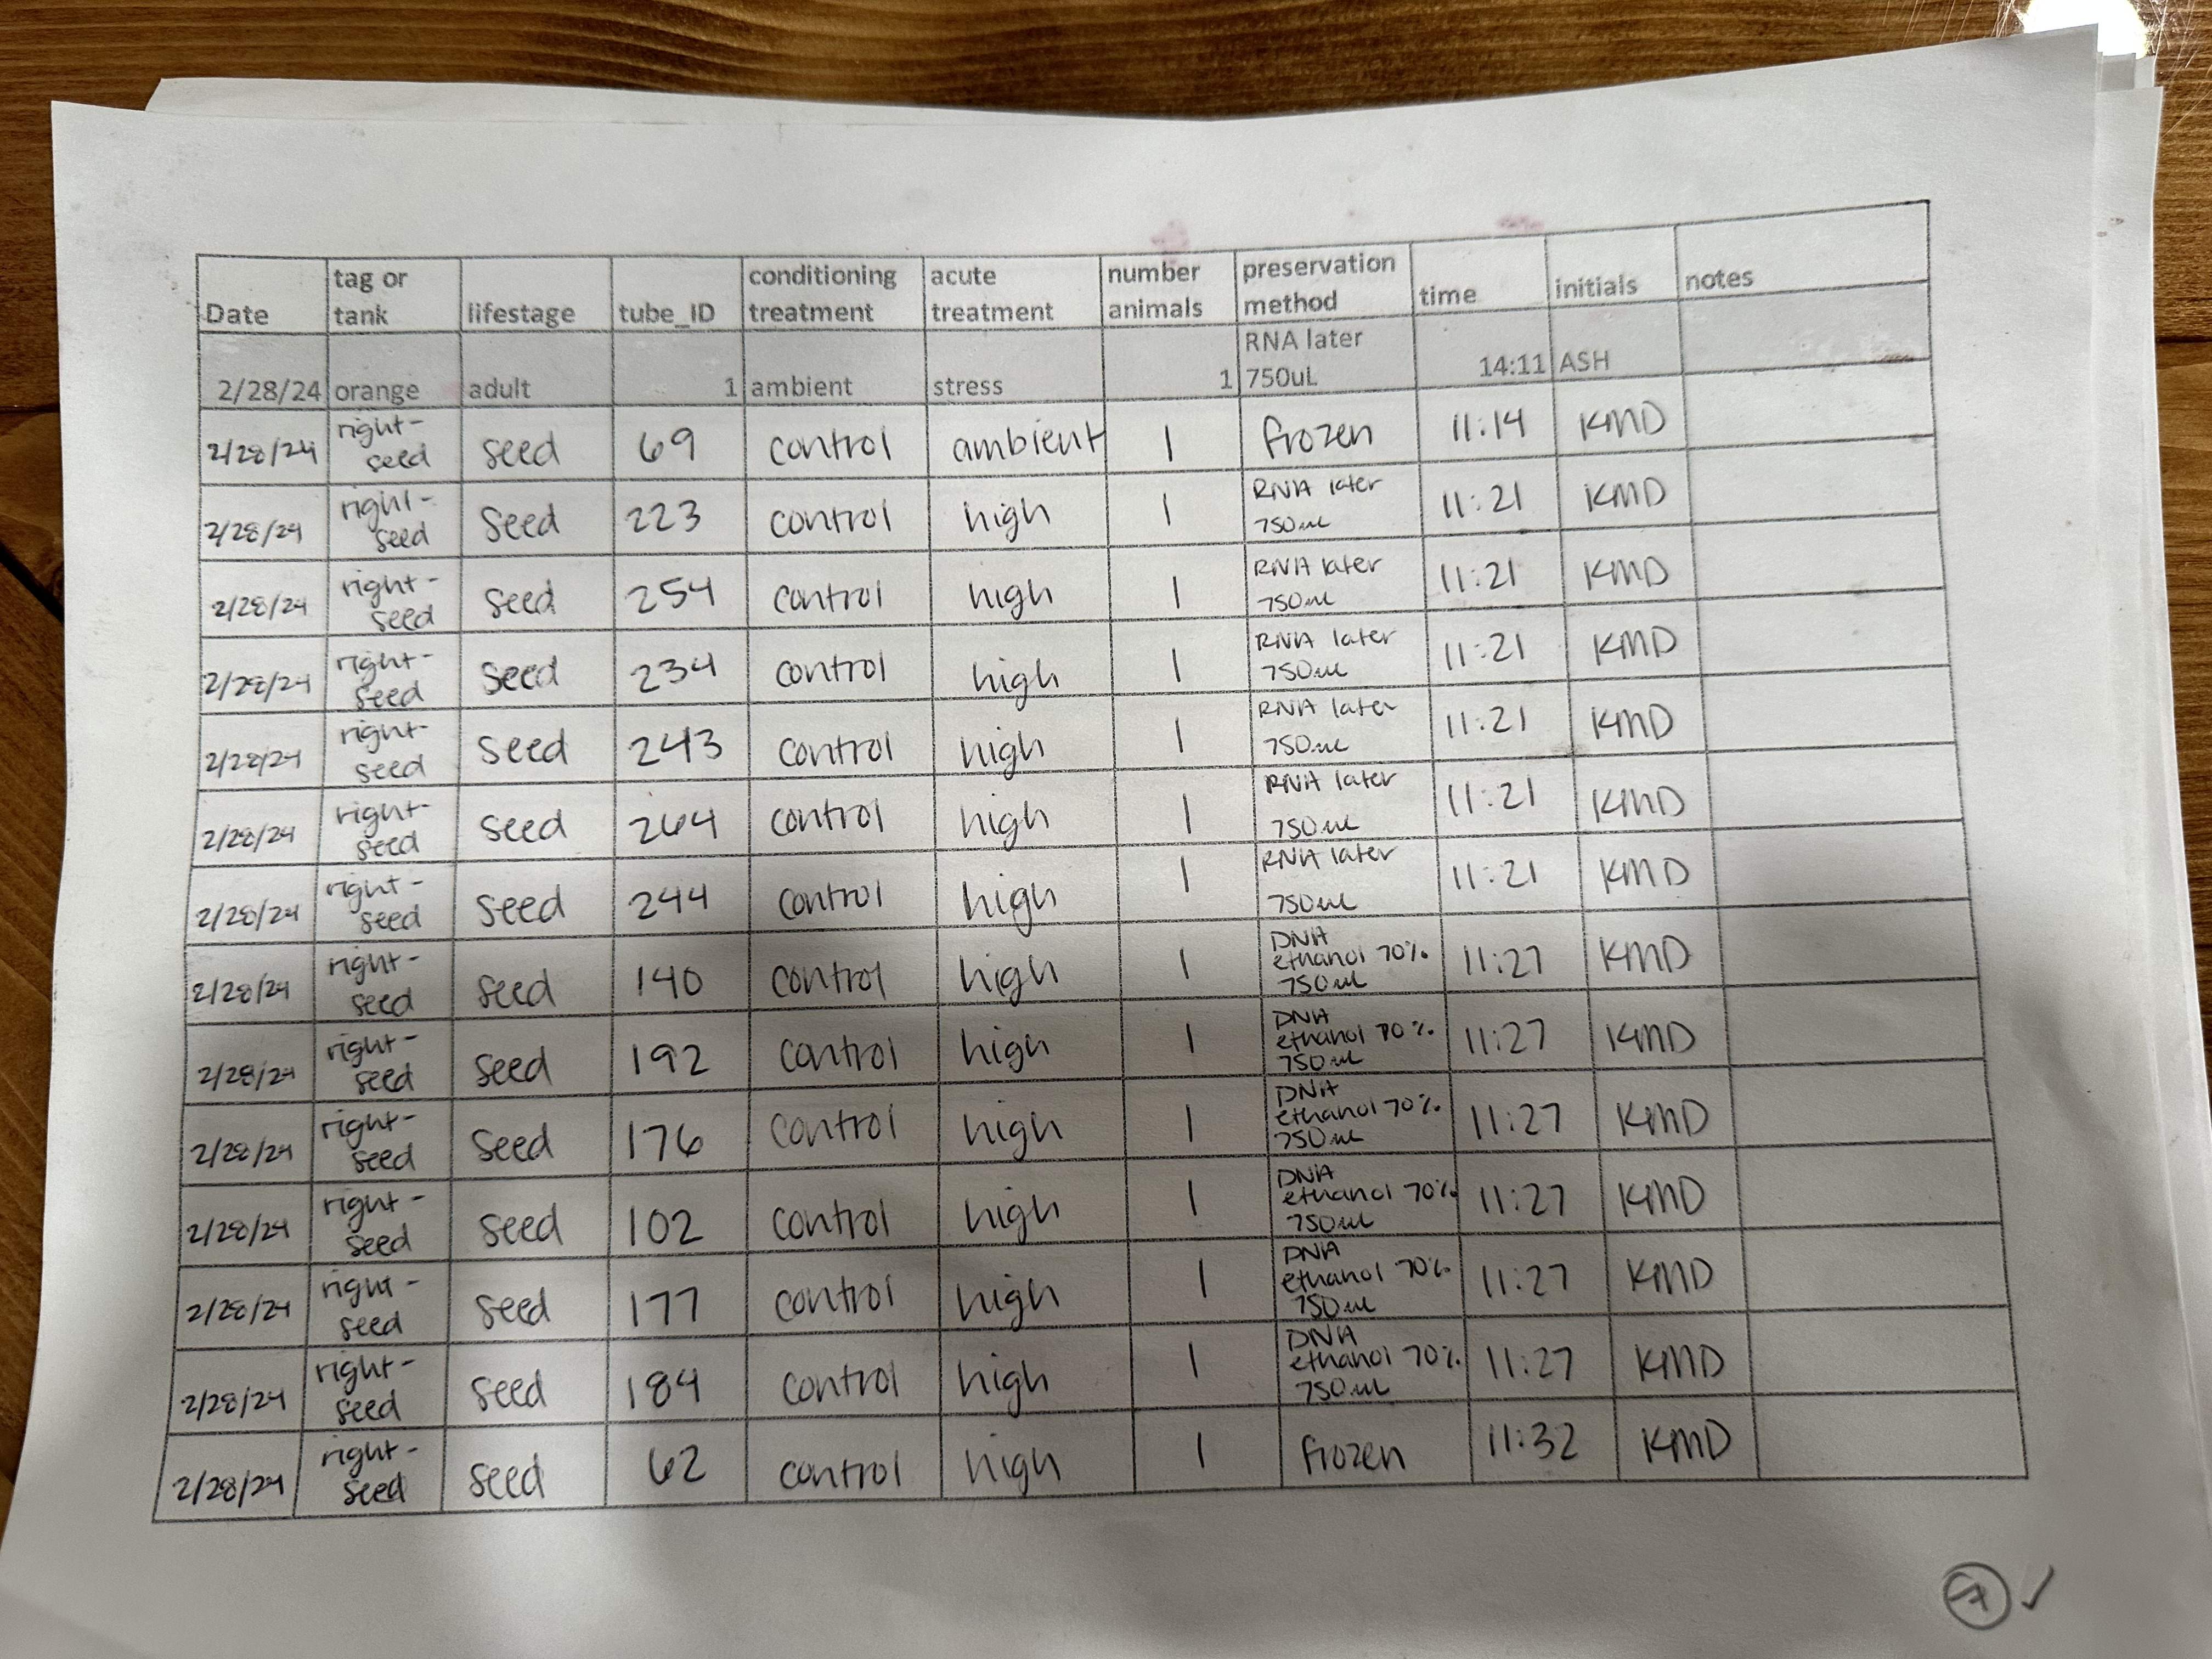 Date | tag or tank | lifestage | tube_ID | conditioning treatment | acute treatment | number animals | preservation method | time | initials | notes
2/28/24 | orange | adult | 1 | ambient | stress | 1 | RNA later 750uL | 14:11 | ASH
2/28/24 | right-seed | seed | 69 | control | ambient | 1 | frozen | 11:14 | KMD
2/28/24 | right-seed | seed | 223 | control | high | 1 | RNA later 750uL | 11:21 | KMD
2/28/24 | right-seed | seed | 254 | control | high | 1 | RNA later 750uL | 11:21 | KMD
2/28/24 | right-seed | seed | 234 | control | high | 1 | RNA later 750uL | 11:21 | KMD
2/28/24 | right-seed | seed | 243 | control | high | 1 | RNA later 750uL | 11:21 | KMD
2/28/24 | right-seed | seed | 264 | control | high | 1 | RNA later 750uL | 11:21 | KMD
2/28/24 | right-seed | seed | 244 | control | high | 1 | RNA later 750uL | 11:21 | KMD
2/28/24 | right-seed | seed | 140 | control | high | 1 | DNA ethanol 70% 750uL | 11:27 | KMD
2/28/24 | right-seed | seed | 192 | control | high | 1 | DNA ethanol 70% 750uL | 11:27 | KMD
2/28/24 | right-seed | seed | 176 | control | high | 1 | DNA ethanol 70% 750uL | 11:27 | KMD
2/28/24 | right-seed | seed | 102 | control | high | 1 | DNA ethanol 70% 750uL | 11:27 | KMD
2/28/24 | right-seed | seed | 177 | control | high | 1 | DNA ethanol 70% 750uL | 11:27 | KMD
2/28/24 | right-seed | seed | 184 | control | high | 1 | DNA ethanol 70% 750uL | 11:27 | KMD
2/28/24 | right-seed | seed | 62 | control | high | 1 | frozen | 11:32 | KMD